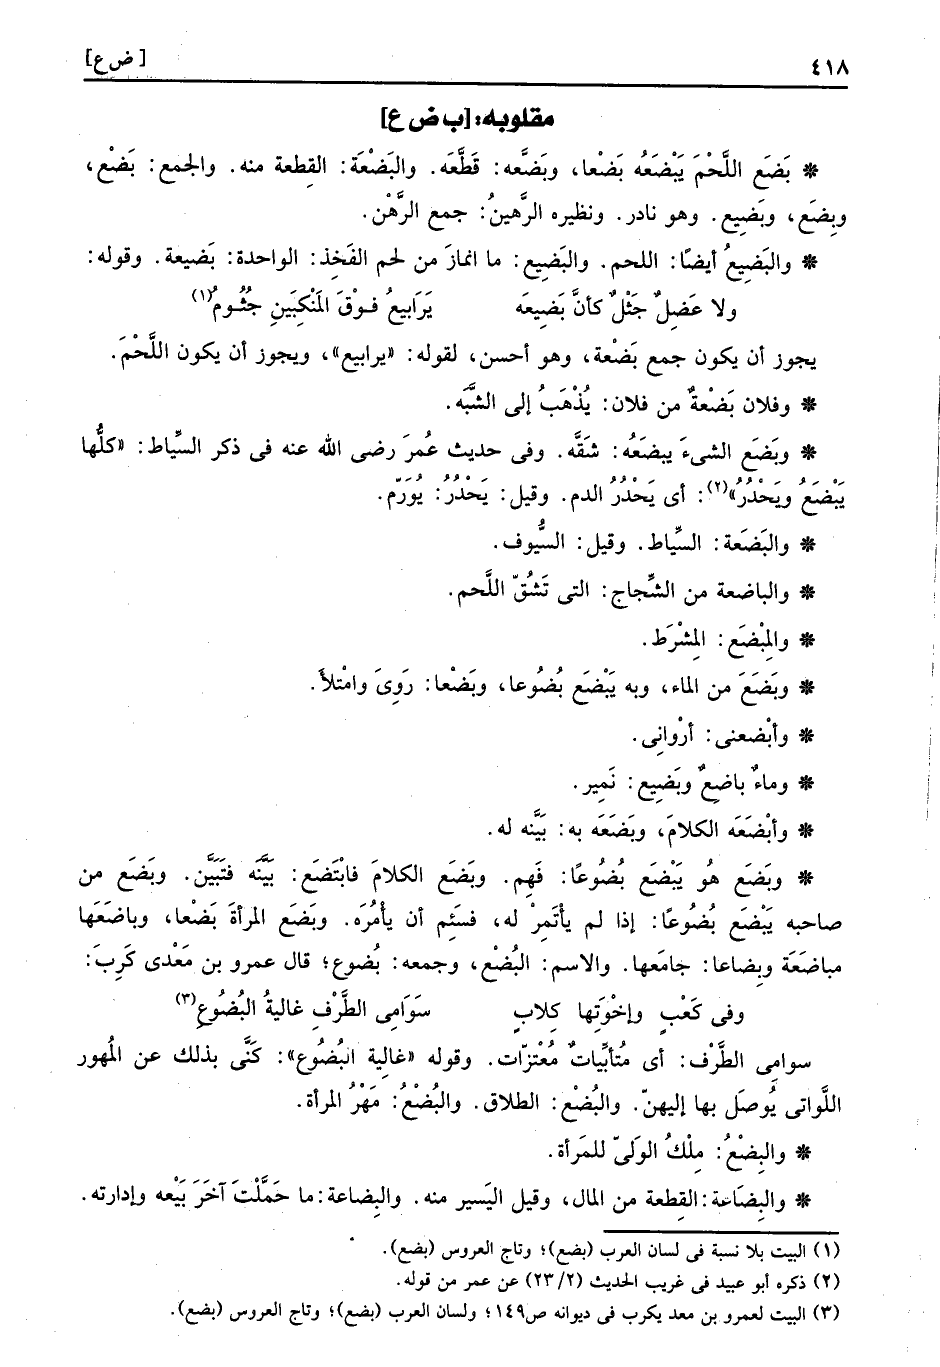 ٤١٨ [ ض ع ]
مقلوبه: [ب ض ع]
* بَضَع اللَّحْمَ يَبْضَعُه بَضْعا، وبَضَّعه: قَطَّعَه. والبَضْعَة: القطعة منه. والجمع: بَضْع،
وبِضَع، وبَضِيع. وهو نادر. ونظيره الرَّهينُ: جمع الرَّهْن.
* والبَضِيعُ أيضًا: اللحم. والبَضِيع: ما انمازَ من لحم الفَخِذ: الواحدة: بَضيعة. وقوله:
ولا عَضِلٌ جَثْلٌ كأنَّ بَضيعَه يَرَابيعُ فوْقَ المَنْكِبَينِ جُثُومُ(١)
يجوز أن يكون جمع بَضْعة، وهو أحسن، لقوله: «يرابيع»، ويجوز أن يكون اللَّحْمَ.
* وفلان بَضْعةٌ من فلان: يُذْهَبُ إلى الشَّبَه.
* وبَضَع الشىءَ يبضَعُه: شقَّه. وفى حديث عُمرَ رضى الله عنه فى ذكر السِّياط: «كلُّها
يَبْضَعُ ويَحْدُرُ»(٢): أى يَحْدُرُ الدم. وقيل: يَحْدُرُ: يُوَرّم.
* والبَضَعة: السِّياط. وقيل: السُّيوف.
* والباضعة من الشِّجاج: التى تَشُقّ اللَّحم.
* والمِبْضَع: المِشْرَط.
* وبَضَعَ من الماء، وبه يَبْضَع بُضُوعا، وبَضْعا: رَوِىَ وامْتلأَ.
* وأبْضعنى: أرْوانِى.
* وماءٌ باضِعٌ وبَضِيع: نَمِير.
* وأبْضَعَه الكلامَ، وبَضَعَه به: بَيَّنه له.
* وبَضَع هُو يَبْضَع بُضُوعًا: فَهِم. وبَضَع الكلامَ فابْتَضَع: بَيَّنَه فَتَبَيَّن. وبَضَع من
صاحبه يَبْضَع بُضُوعًا: إذا لم يأتَمِرْ له، فسَئِم أن يأمُرَه. وبَضَع المرأةَ بَضْعا، وباضَعَها
مباضَعَة وبِضاعا: جامَعها. والاسم: البُضْع، وجمعه: بُضوع؛ قال عمرو بن مَعْدى كَرِبَ:
وفى كَعْبٍ وإخْوَتِها كِلابٍ سَوَامِى الطَّرْفِ غاليةُ البُضُوعِ(٣)
سوامِى الطَّرْف: أى مُتأبِّياتٌ مُعْتزّات. وقوله «غالية البُضُوع»: كَنَّى بذلك عن المُهور
اللَّواتى يُوصَل بها إليهنّ. والبُضْع: الطلاق. والبُضْعُ: مَهْرُ المرأة.
* والبِضْعُ: مِلْكُ الولىّ للمَرأة.
* والبِضَاعة: القطعة من المال، وقيل اليَسير منه. والبِضاعة: ما حَمَّلْتَ آخَرَ بَيْعه وإدارته.
(١) البيت بلا نسبة فى لسان العرب (بضع)؛ وتاج العروس (بضع).
(٢) ذكره أبو عبيد فى غريب الحديث (٢٣/٢) عن عمر من قوله.
(٣) البيت لعمرو بن معد يكرب فى ديوانه ص١٤٩؛ ولسان العرب (بضع)؛ وتاج العروس (بضع).